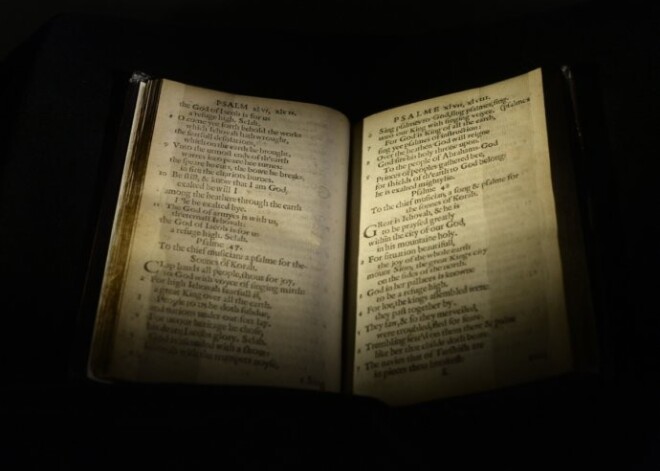 PSALM xlvi, xlvii.
the God of Iacob is for us
a refuge high. Selah.
8 O come yee forth behold the works
which Iehovah hath wrought,
the fearfull desolations,
which on the earth he brought.
9 Vnto the utmost ends of th'earth
warres into peace hee turnes:
the speare he cuts, the bowe he breakes,
in fire the chariots burnes.
10 Be still, & know that I am God,
exalted be will I
among the heathen through the earth
I'le be exalted hye.
11 The God of armyes is with us,
th'eternall Iehovah:
the God of Iacob is for us
a refuge high. Selah.
Psalme 47.
To the chief musician a psalme for the
Sonnes of Korah.
Clap hands all people, shout for joy,
to God with voyce of singing mirth:
2 For high Iehovah fearfull is,
a great King over all the earth.
3 People to us he doth subdue,
and nations under our feet lay.
4 For us our heritage he chose,
his deare Iacobs glory. Selah.
5 God is ascended with a shout:
Iehovah with the trumpets noyse.
PSALME xlvii, xlviii.
6 Sing psalmes to God, sing psalmes, sing
unto our King with singing voyce. (psalmes
7 For God is King of all the earth,
sing yee psalmes of instruction:
8 Over the heathen God will reigne
God sits his holy throne upon.
9 To the people of Abrahams God
Princes of peoples gathered bee,
for shields of th'earth to God belong:
he is exalted mightylie.
Psalme 48
To the chief musician, a song & psalme for
the sonnes of Korah.
Great is Iehovah, & he is
to be praysed greatly
within the city of our God,
in his mountaine holy.
2 For situation beautifull,
the joy of the whole earth
mount Sion; the great Kings city
on the sides of the north.
3 God in her pallaces is knowne
to be a refuge high.
4 For loe, the kings assembled were:
they past together by.
5 They saw, & so they merveiled,
were troubled, fled for feare.
6 Trembling seiz'd on them there & paine
like her that childe doth beare.
7 The navies that of Tarshish are
in pieces thou breakest: